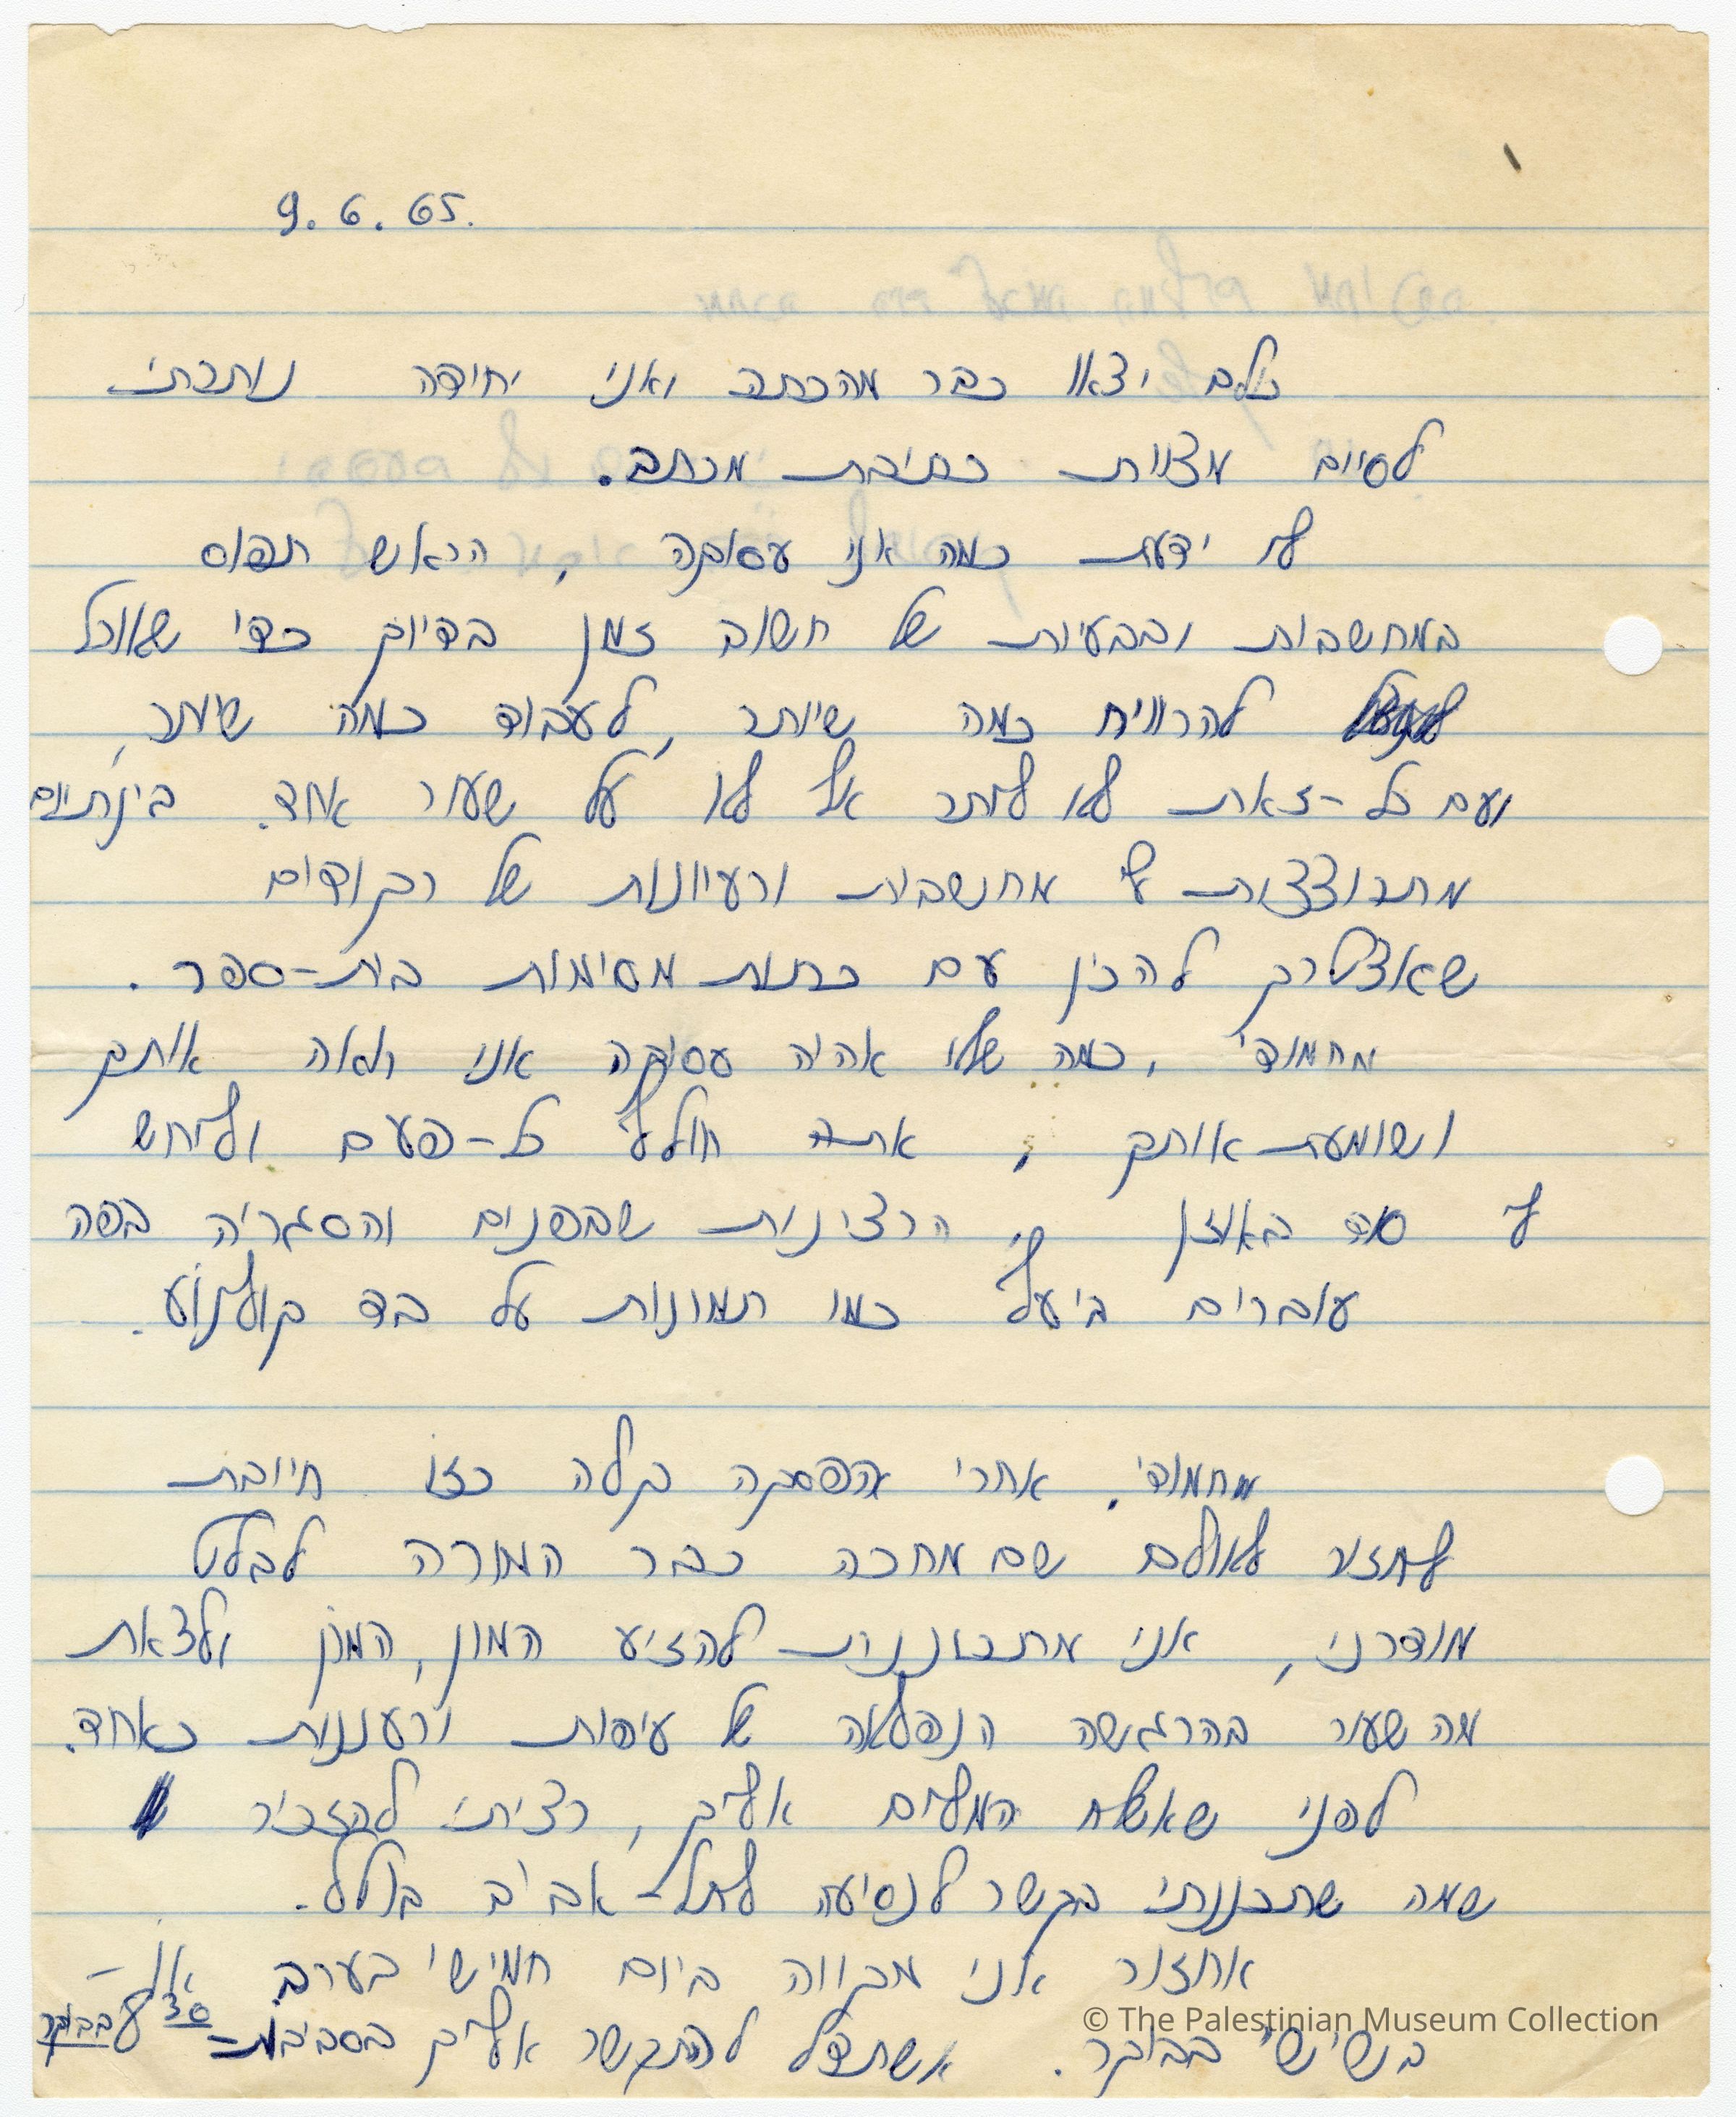 9.6.65.
כולם יצאו כבר מהכתה ואני יחידה נותרתי
לסיום מצוות כתיבת מכתב.
לו ידעת כמה אני עסוקה, הראש תפוס
במחשבות ובבעיות של חשוב זמן בדיוק כדי שאוכל
להרוויח כמה שיותר, לעבוד כמה שיותר,
ועם כל-זאת לא לוותר אף לא על שעור אחד. בינתיים
מתרוצצות לי מחשבות ורעיונות של רקודים
שאצטרך להכין עם כתות מסוימות בית-ספר.
מחמודי, כמה שלא אהיה עסוקה אני רואה אותך
ושומעת אותך, אתה חולף כל-פעם ולוחש
לי סוד באוזן, הרצינות שבפנים והסגריה בפה
עוברים ביעף כמו תמונות על בד קולנוע.
מחמודי, אחרי הפסקה קלה כזו חייבת
לחזור לאולם שם מחכה כבר המורה לבלט
מודרני, אני מתכוננת להזיע המון, המון ולצאת
מהשעור בהרגשה הנפלאה של עיפות ורעננות כאחד.
לפני שאשלח המלים אליך, רציתי להזכיר
שמה שתכננתי בקשר לנסיעה לתל-אביב בוטל.
אחזור אני מקווה ביום חמישי בערב או -
בשישי בבוקר. אשתדל להתקשר אליך בסביבות 8 30 בבוקר
© The Palestinian Museum Collection